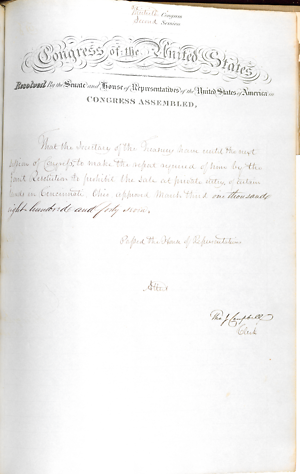 Thirtieth Congress
Second Session
Congress of the United States
Resolved By the Senate and House of Representatives of the United States of America in
CONGRESS ASSEMBLED,
That the Secretary of the Treasury have until the next
session of Congress to make the report required of him by the
Joint Resolution to prohibit the sale at private entry, of certain
lands in Cincinnati, Ohio, approved March third one thousand
eight hundred and forty seven.
Passed the House of Representatives
Attest
Tho. J. Campbell
Clerk